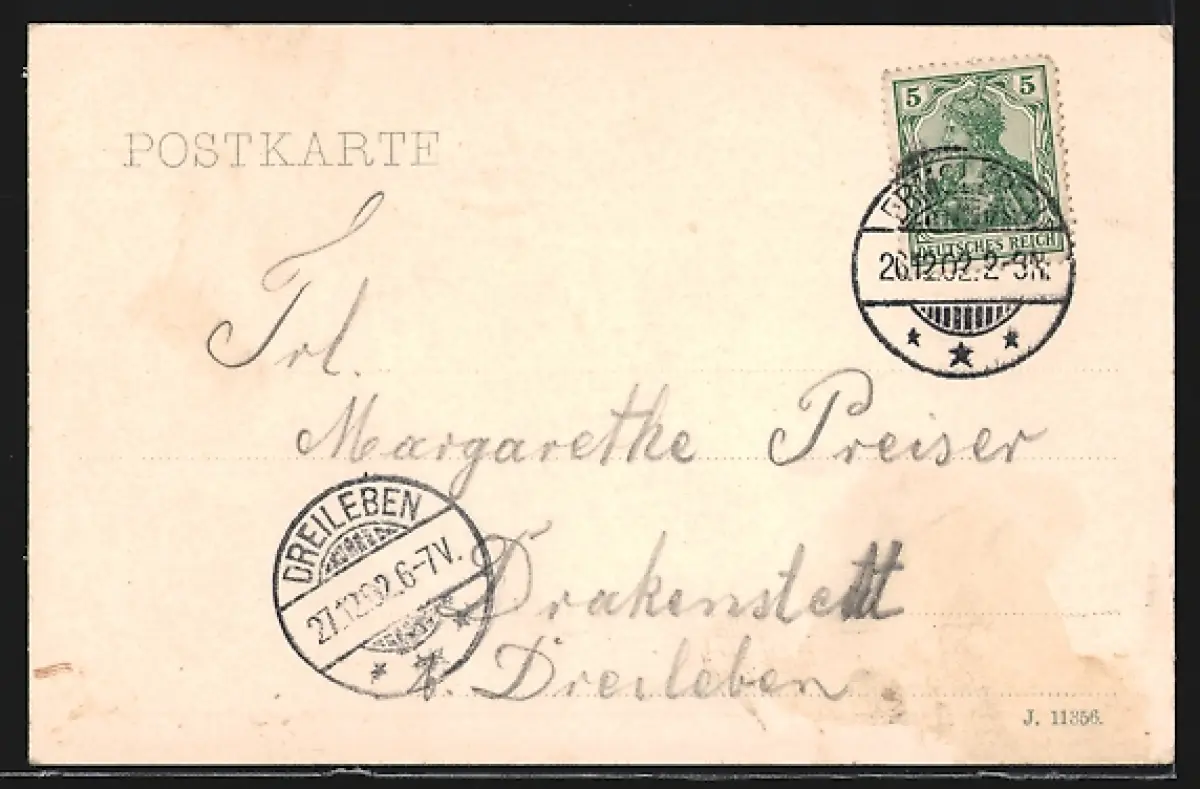 POSTKARTE
5 5
DEUTSCHES REICH
26.12.02. 2-3N.
Frl.
Margarethe Preiser
DREILEBEN
27.12.02. 6-7V.
Drakenstedt
b. Dreileben
J. 11356.